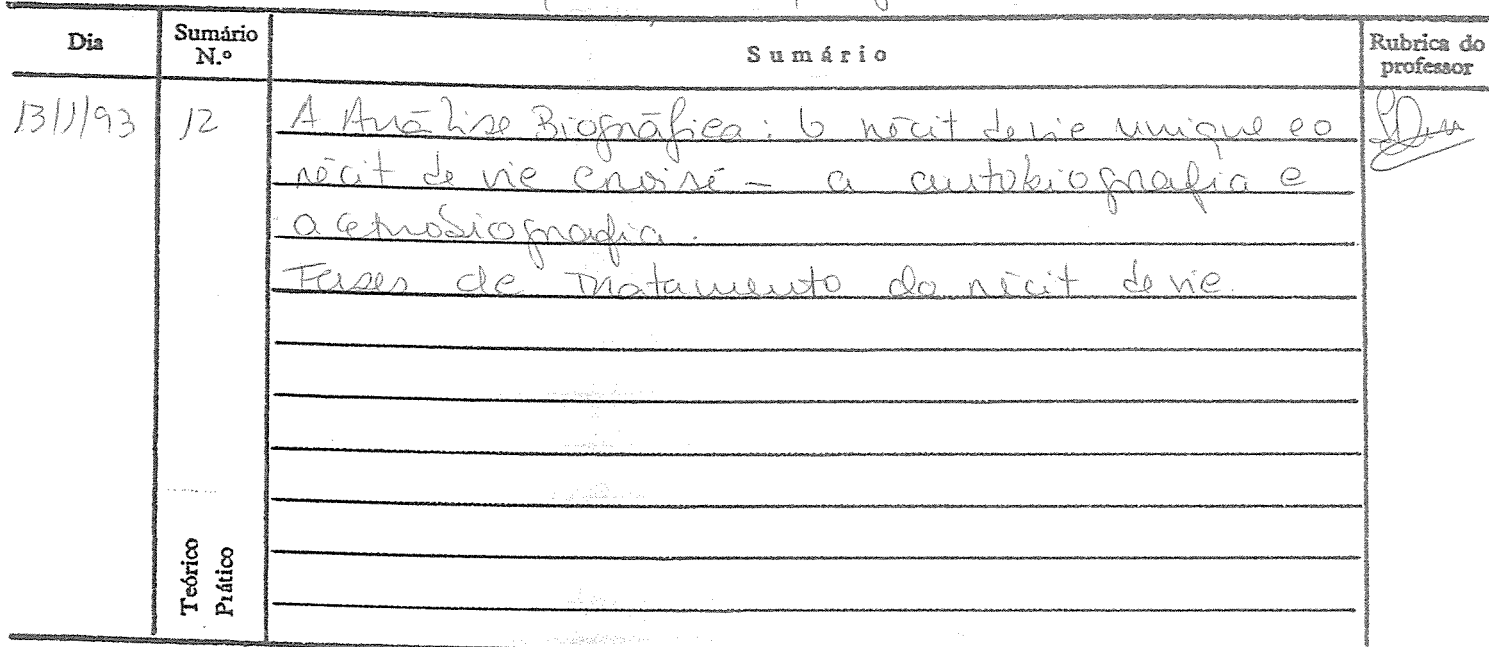 Dia
Sumário N.º
Sumário
Rubrica do professor
13/1/93
12
A Análise Biográfica: O récit de vie unique e o
récit de vie croisé - a autobiografia e
a etnobiografia.
Fases de tratamento do récit de vie.
Teórico
Prático